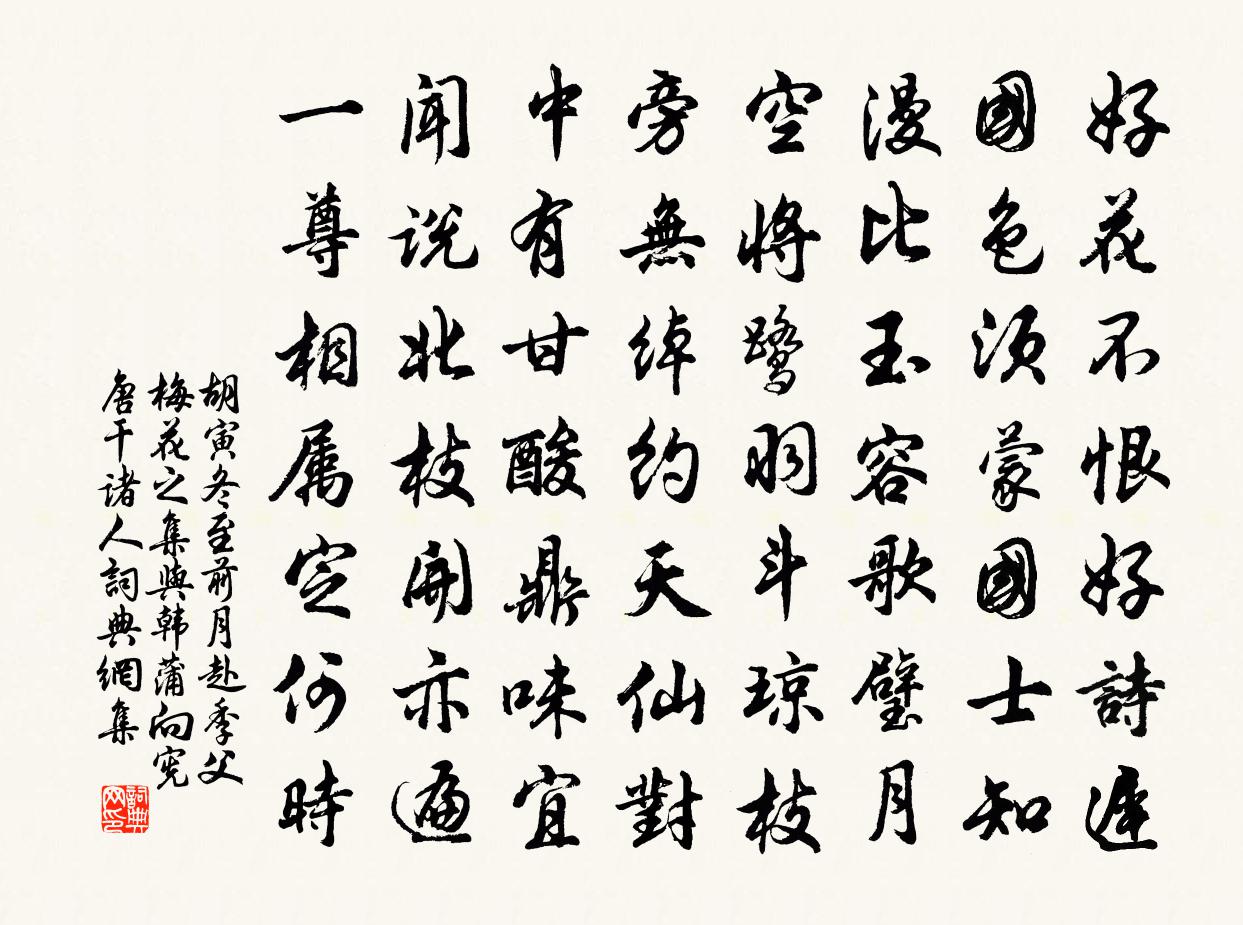 好花不恨好詩遲
國色須蒙國士知
漫比玉容歌璧月
空將鷺羽斗琼枝
旁無綽約天仙對
中有甘酸鼎味宜
聞說北枝開亦遍
一尊相属定何時
胡寅冬至前月赴季父
梅花之集與韩蒲向憲
唐干诸人詞典網集
詞典网印